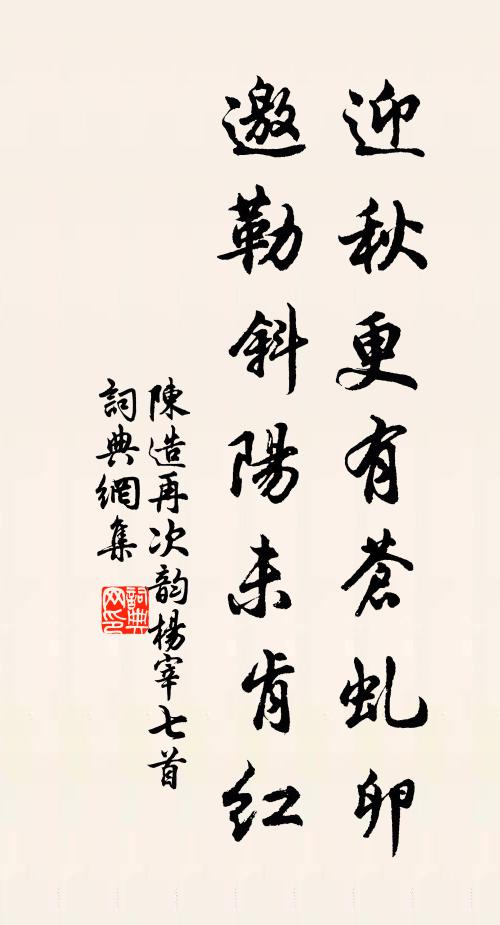 迎秋更有蒼虬卵
邀勒斜陽未肯紅
陳造再次韵楊宰七首
詞典網集
詞典网印